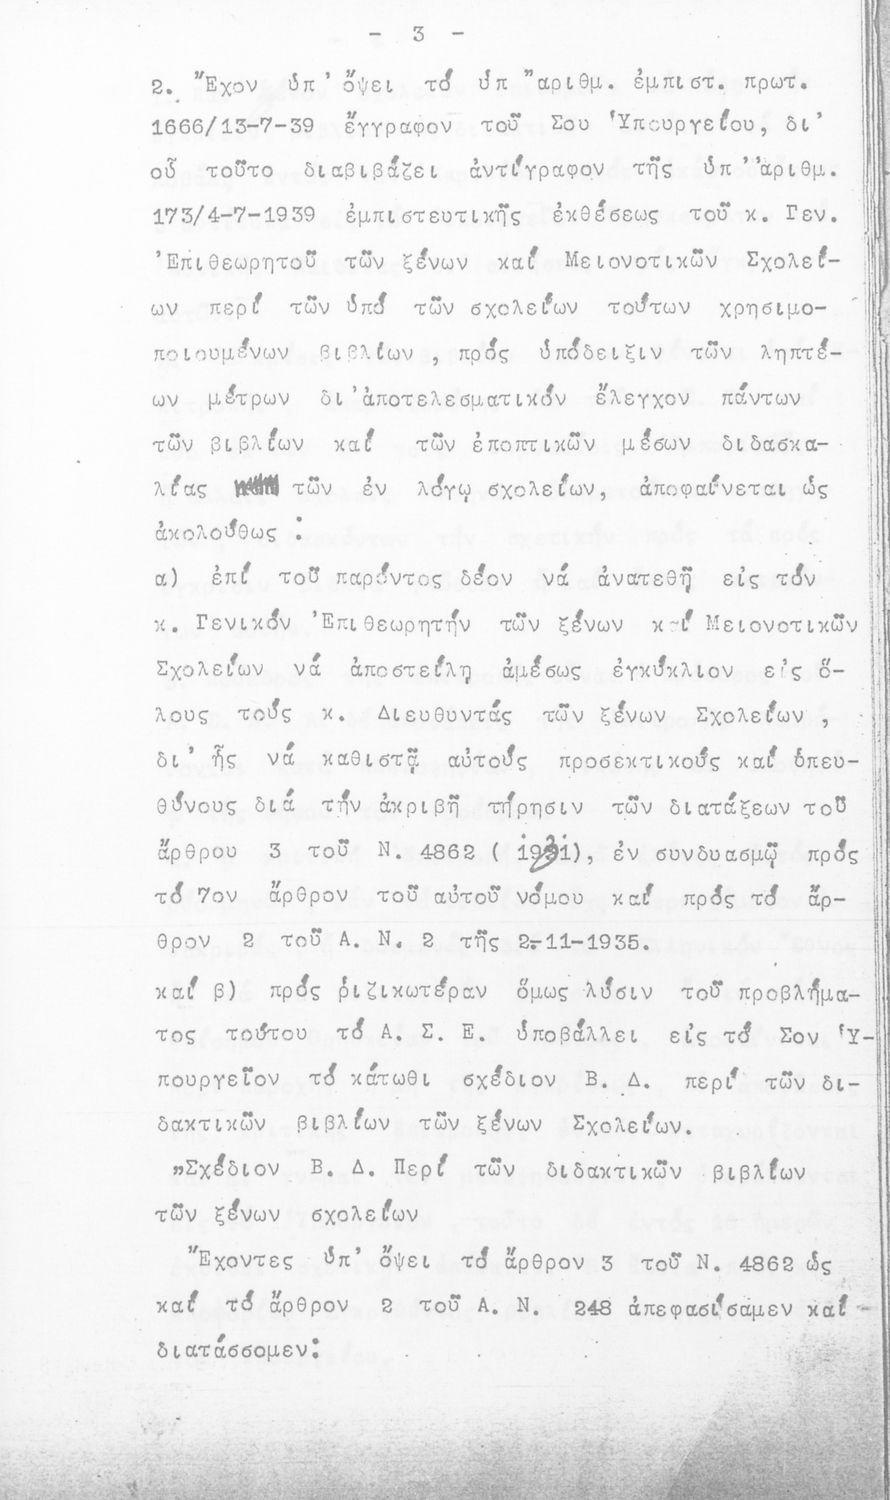 - 3 -
2. Ἔχον ὑπ' ὄψει τό ὑπ' ἀριθμ. ἐμπιστ. πρωτ.
1666/13-7-39 ἔγγραφον τοῦ Σου Ὑπουργείου, δι'
οὗ τοῦτο διαβιβάζει ἀντίγραφον τῆς ὑπ' ἀριθμ.
173/4-7-1939 ἐμπιστευτικῆς ἐκθέσεως τοῦ κ. Γεν.
Ἐπιθεωρητοῦ τῶν ξένων καί Μειονοτικῶν Σχολεί-
ων περί τῶν ὑπό τῶν σχολείων τούτων χρησιμο-
ποιουμένων βιβλίων , πρός ὑπόδειξιν τῶν ληπτέ-
ων μέτρων δι' ἀποτελεσματικόν ἔλεγχον πάντων
τῶν βιβλίων καί τῶν ἐποπτικῶν μέσων διδασκα-
λίας τῶν ἐν λόγῳ σχολείων, ἀποφαίνεται ὡς
ἀκολούθως :
α) ἐπί τοῦ παρόντος δέον νά ἀνατεθῇ εἰς τόν
κ. Γενικόν Ἐπιθεωρητήν τῶν ξένων καί Μειονοτικῶν
Σχολείων νά ἀποστείλῃ ἀμέσως ἐγκύκλιον εἰς ὅ-
λους τούς κ. Διευθυντάς τῶν ξένων Σχολείων ,
δι' ἧς νά καθιστᾷ αὐτούς προσεκτικούς καί ὑπευ-
θύνους διά τήν ἀκριβῆ τήρησιν τῶν διατάξεων τοῦ
ἄρθρου 3 τοῦ Ν. 4862 ( 1931), ἐν συνδυασμῷ πρός
τό 7ον ἄρθρον τοῦ αὐτοῦ νόμου καί πρός τό ἄρ-
θρον 2 τοῦ Α. Ν. 2 τῆς 2-11-1935.
καί β) πρός ῥιζικωτέραν ὅμως λύσιν τοῦ προβλήμα-
τος τούτου τό Α. Σ. Ε. ὑποβάλλει εἰς τό Σον Ὑ-
πουργεῖον τό κάτωθι σχέδιον Β. Δ. περί τῶν δι-
δακτικῶν βιβλίων τῶν ξένων Σχολείων.
"Σχέδιον Β. Δ. Περί τῶν διδακτικῶν βιβλίων
τῶν ξένων σχολείων
Ἔχοντες ὑπ' ὄψει τό ἄρθρον 3 τοῦ Ν. 4862 ὡς
καί τό ἄρθρον 2 τοῦ Α. Ν. 248 ἀπεφασίσαμεν καί
διατάσσομεν: